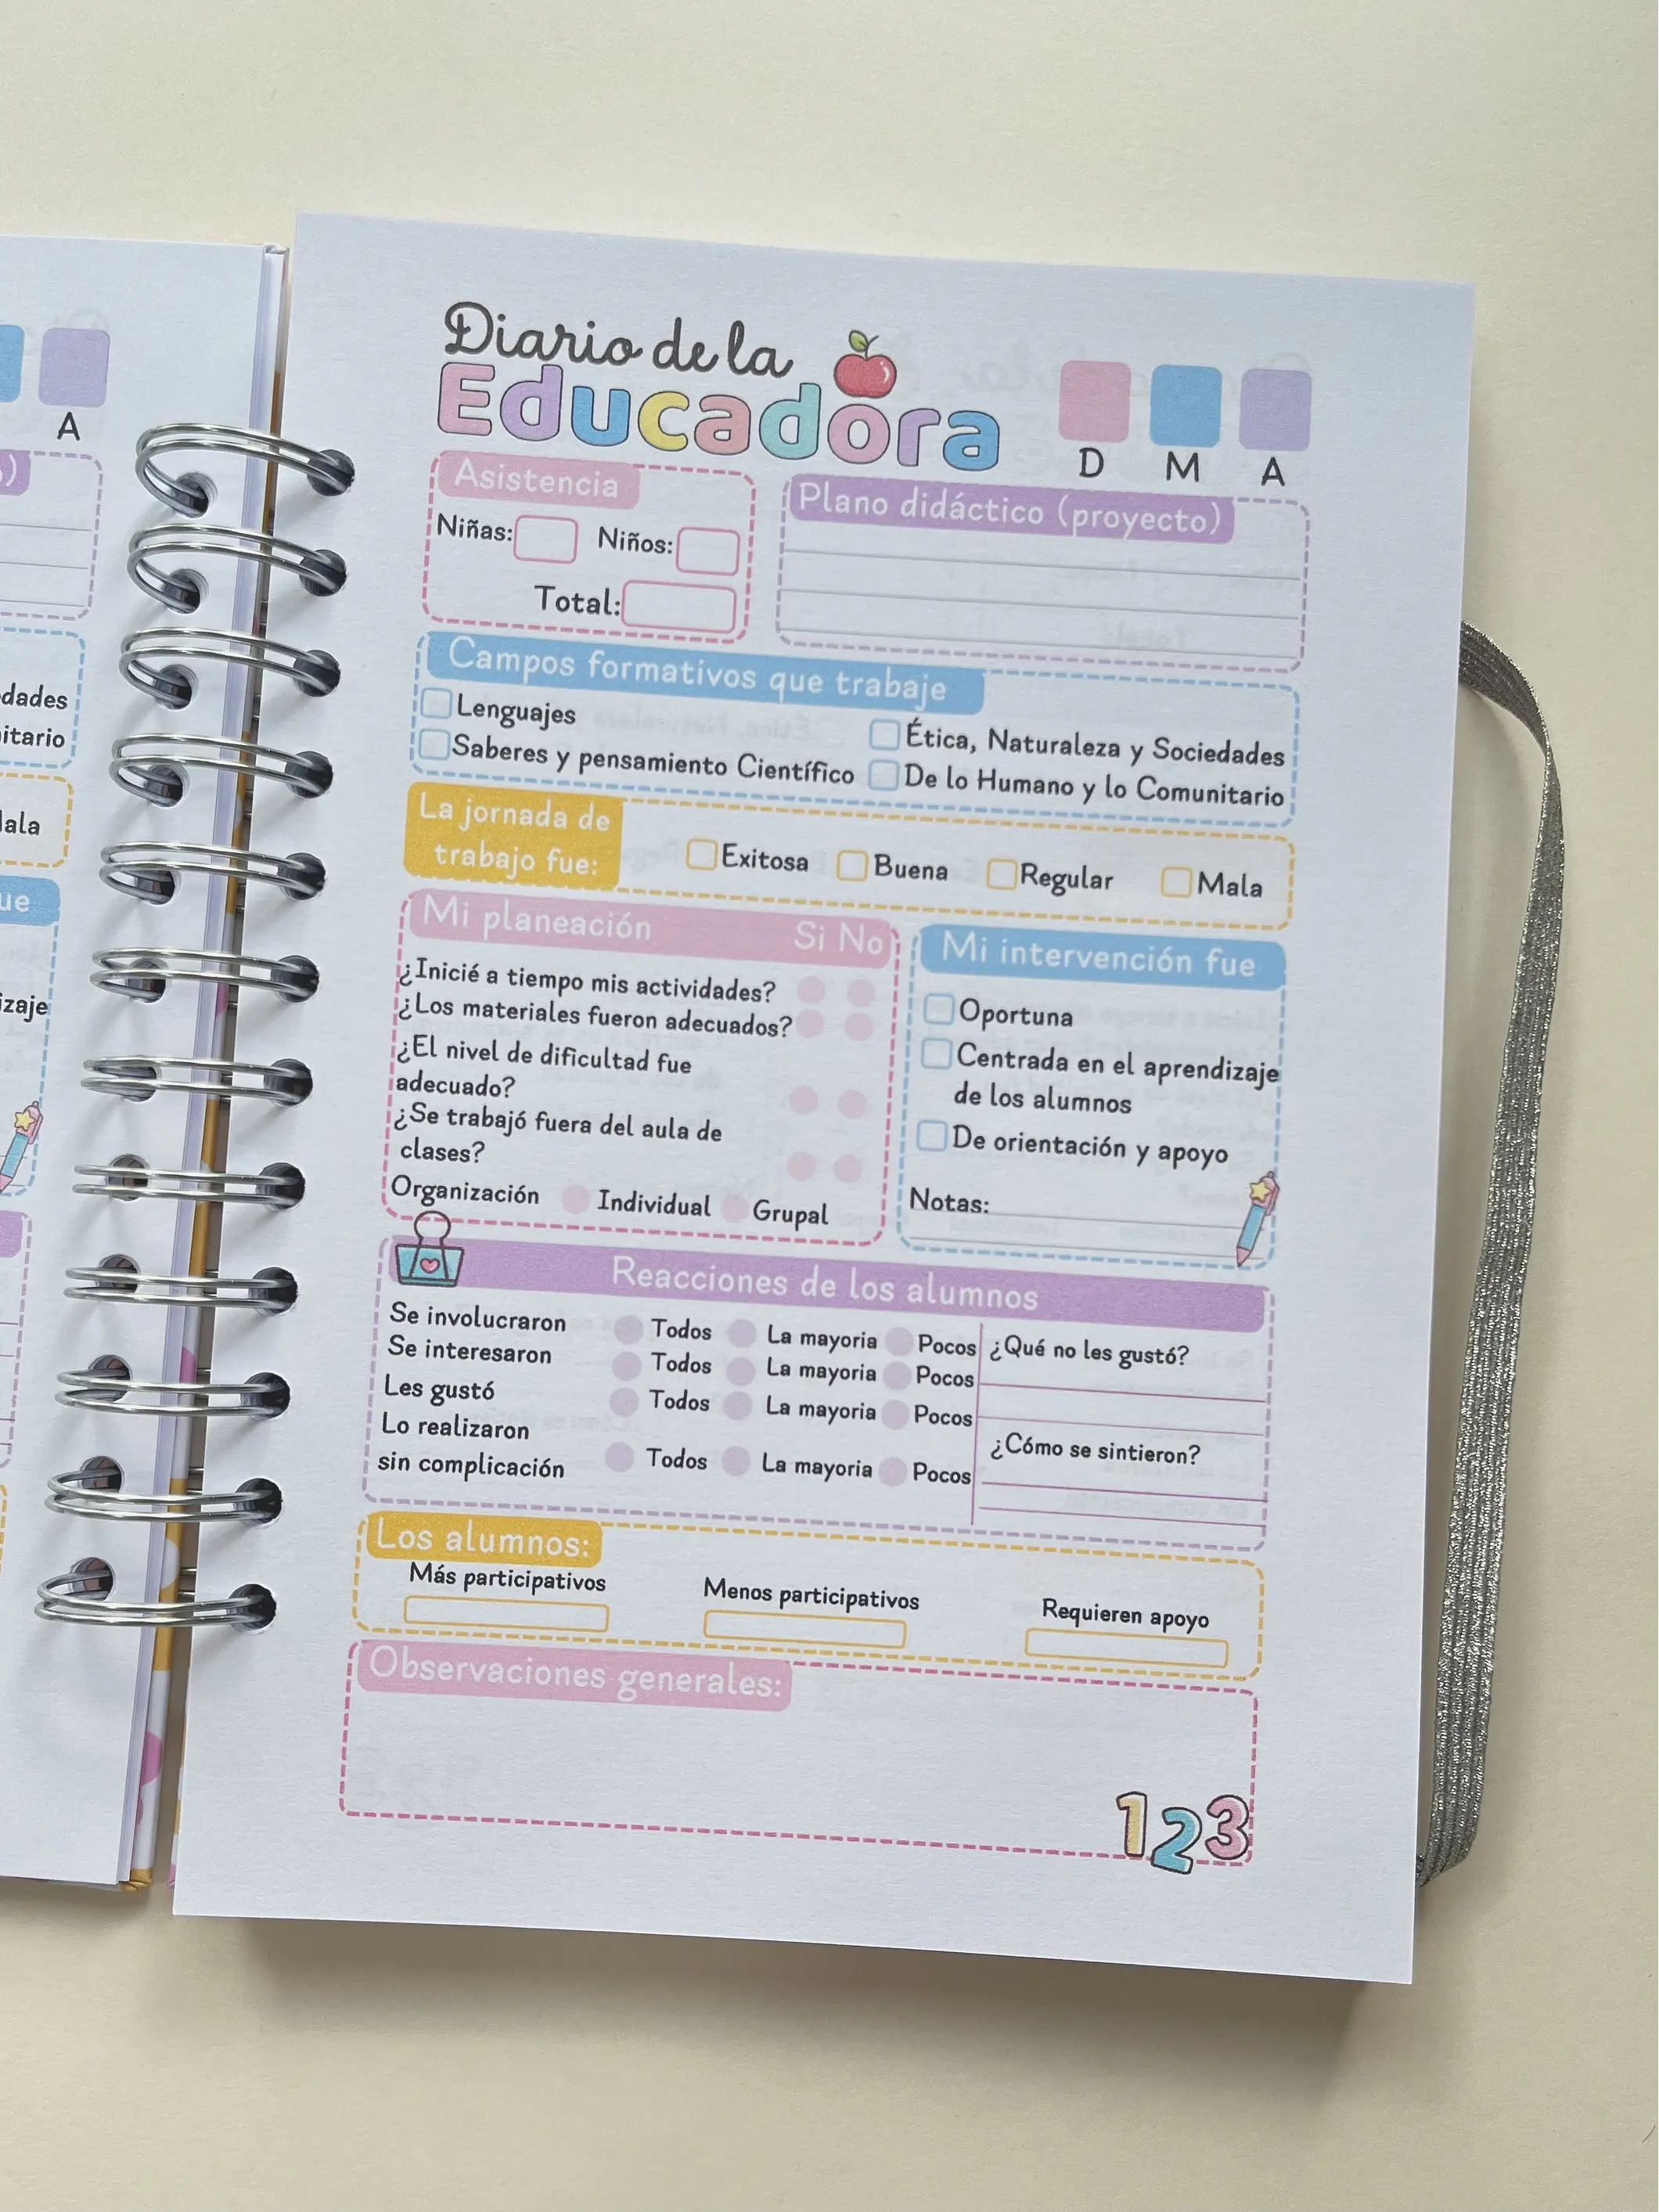 A
dades
itario
ala
ue
izaje
Diario de la
Educadora
D M A
Asistencia
Niñas: Niños:
Total:
Plano didáctico (proyecto)
Campos formativos que trabaje
Lenguajes
Saberes y pensamiento Científico
Ética, Naturaleza y Sociedades
De lo Humano y lo Comunitario
La jornada de
trabajo fue:
Exitosa Buena Regular Mala
Mi planeación Si No
¿Inicié a tiempo mis actividades?
¿Los materiales fueron adecuados?
¿El nivel de dificultad fue
adecuado?
¿Se trabajó fuera del aula de
clases?
Organización Individual Grupal
Mi intervención fue
Oportuna
Centrada en el aprendizaje
de los alumnos
De orientación y apoyo
Notas:
Reacciones de los alumnos
Se involucraron Todos La mayoria Pocos
Se interesaron Todos La mayoria Pocos
Les gustó Todos La mayoria Pocos
Lo realizaron
sin complicación Todos La mayoria Pocos
¿Qué no les gustó?
¿Cómo se sintieron?
Los alumnos:
Más participativos Menos participativos Requieren apoyo
Observaciones generales:
123